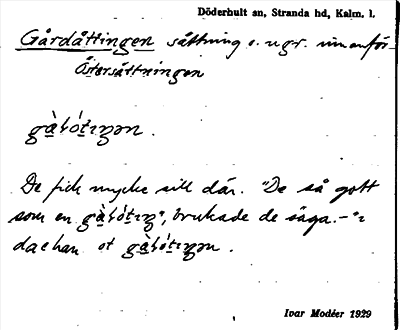 Döderhult sn, Stranda hd, Kalm. l.
Gårdåttingen sättning o. ngr. innanför
Östersättningen
gàɫót̠ıŋən.
De fick mycke sill där. "De så gott
som en gàɫót̠ıŋ", brukade de säga. –
han at gàɫót̠ıŋən.
Ivar Modéer 1929